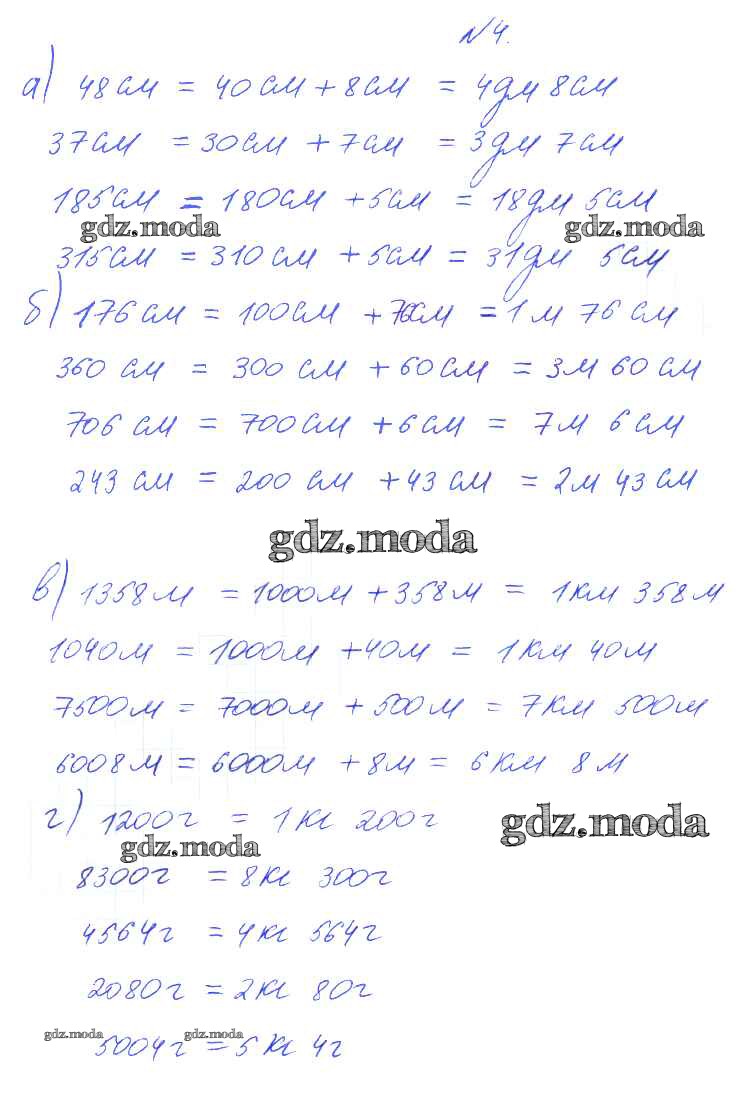 №4.
а) 48см = 40см + 8см = 4дм 8см
37см = 30см + 7см = 3дм 7см
185см = 180см + 5см = 18дм 5см
gdz.moda gdz.moda
315см = 310см + 5см = 31дм 5см
б) 176см = 100см + 76см = 1м 76см
360 см = 300 см + 60см = 3м 60см
706 см = 700см + 6см = 7м 6см
243 см = 200 см + 43 см = 2м 43 см
gdz.moda
в) 1358м = 1000м + 358м = 1км 358м
1040м = 1000м + 40м = 1км 40м
7500м = 7000м + 500м = 7км 500м
6008м = 6000м + 8м = 6км 8м
г) 1200г = 1кг 200г
gdz.moda
gdz.moda
8300г = 8кг 300г
4564г = 4кг 564г
2080г = 2кг 80г
gdz.moda gdz.moda
5004г = 5кг 4г